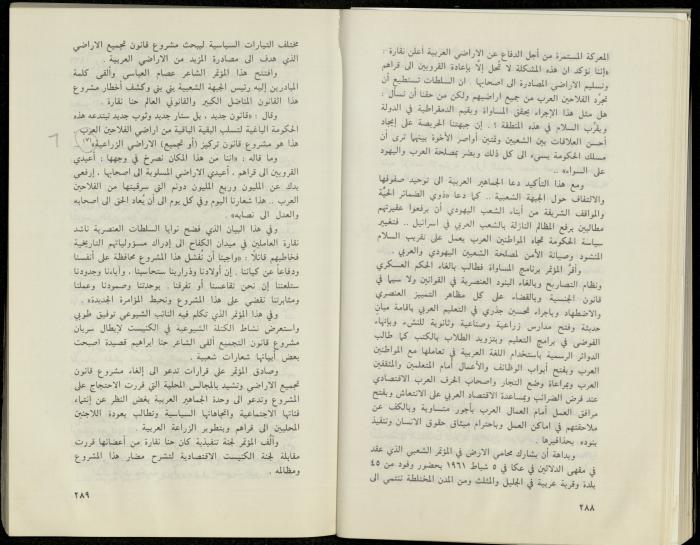 المعركة المستمرة من أجل الدفاع عن الاراضي العربية أعلن نقارة :
«إننا نؤكد ان هذه المشكلة لا تُحل إلّا بإعادة القرويين الى قراهم
وتسليم الاراضي المصادرة الى اصحابها . ان السلطات تستطيع أن
تجرّد الفلاحين العرب من جميع اراضيهم ولكن من حقنا أن نسأل :
هل مثل هذا الإجراء يحقق المساواة ويقيم الديمقراطية في الدولة
ويقرّب السلام في هذه المنطقة ؟ . إن جبهتنا الحريصة على إيجاد
أحسن العلاقات بين الشعبين وتمتين أواصر الأخوة بينهما ترى أن
مسلك الحكومة يسيء الى كل ذلك ويضر بمصلحة العرب واليهود
على السواء» ..
ومع هذا التأكيد دعا الجماهير العربية الى توحيد صفوفها
والالتفاف حول الجبهة الشعبية .. كما دعا «ذوي الضمائر الحيّة
والمواقف الشريفة من أبناء الشعب اليهودي أن يرفعوا عقيرتهم
مطالبين برفع المظالم النازلة بالشعب العربي في اسرائيل .. فتغيير
سياسة الحكومة تجاه المواطنين العرب يعمل على تقريب السلام
المنشود وصيانة الأمن لمصلحة الشعبين اليهودي والعربي .
وأقرّ المؤتمر برنامج المساواة فطالب بالغاء الحكم العسكري
ونظام التصاريح وبالغاء البنود العنصرية في القوانين ولا سيما في
قانون الجنسية وبالقضاء على كل مظاهر التمييز العنصري
والاضطهاد وباجراء تحسين جذري في التعليم العربي باقامة مبانٍ
حديثة وفتح مدارس زراعية وصناعية وثانوية للنشء وبإنهاء
الفوضى في برامج التعليم وبتزويد الطلاب بالكتب كما طالب
الدوائر الرسمية باستخدام اللغة العربية في تعاملها مع المواطنين
العرب وبفتح أبواب الوظائف والأعمال أمام المتعلمين والمثقفين
العرب وبمراعاة وضع التجار واصحاب الحرف العرب الاقتصادي
عند فرض الضرائب وبمساعدة الاقتصاد العربي على الانتعاش وبفتح
مرافق العمل أمام العمال العرب بأجور متساوية وبالكف عن
ملاحقتهم في اماكن العمل وباحترام ميثاق حقوق الانسان وتنفيذ
بنوده بحذافيرها .
وبداهة أن يشارك محامي الارض في المؤتمر الشعبي الذي عقد
في مقهى الدلالين في عكا في ٥ شباط ١٩٦١ بحضور وفود من ٤٥
بلدة وقرية عربية في الجليل والمثلث ومن المدن المختلطة تنتمي الى
٢٨٨
مختلف التيارات السياسية ليبحث مشروع قانون تجميع الاراضي
الذي هدف الى مصادرة المزيد من الاراضي العربية .
وافتتح هذا المؤتمر الشاعر عصام العباسي وألقى كلمة
المبادرين إليه رئيس الجبهة الشعبية يني يني وكشف أخطار مشروع
هذا القانون المناضل الكبير والقانوني العالم حنا نقارة .
وقال : «قانون جديد ، بل ستار جديد وثوب جديد تبتدعه هذه
الحكومة الباغية لتسلب البقية الباقية من اراضي الفلاحين العرب .
هذا هو مشروع قانون تركيز (أو تجميع) الاراضي الزراعية»(٧)
ومما قاله : «اننا من هذا المكان نصرخ في وجهها : أعيدي
القرويين الى قراهم ، أعيدي الاراضي المسلوبة الى اصحابها ، إرفعي
يدك عن المليون وربع المليون دونم التي سرقتيها من الفلاحين
العرب .. هذا شعارنا اليوم وفي كل يوم الى أن يُعاد الحق الى اصحابه
والعدل الى نصابه» .
وفي هذا البيان الذي فضح نوايا السلطات العنصرية ناشد
نقارة العاملين في ميدان الكفاح الى إدراك مسؤولياتهم التاريخية
فخاطبهم قائلا : «واجبنا أن نُفشل هذا المشروع محافظة على أنفسنا
ودفاعا عن كياننا . إن أولادنا وذرارينا ستحاسبنا . وآباءنا وجدودنا
ستلعننا إن نحن تقاعسنا أو تفرقنا . بوحدتنا وصمودنا وعملنا
ومثابرتنا نقضي على هذا المشروع ونحبط المؤامرة الجديدة» .
وفي هذا المؤتمر الذي تكلم فيه النائب الشيوعي توفيق طوبي
واستعرض نشاط الكتلة الشيوعية في الكنيست لإبطال سريان
مشروع قانون التجميع ألقى الشاعر حنا ابراهيم قصيدة اصبحت
بعض أبياتها شعارات شعبية .
وصادق المؤتمر على قرارات تدعو الى إلغاء مشروع قانون
تجميع الاراضي وتشيد بالمجالس المحلية التي قررت الاحتجاج على
المشروع وتدعو الى وحدة الجماهير العربية بغض النظر عن إنتماء
فئاتها الاجتماعية واتجاهاتها السياسية وتطالب بعودة اللاجئين
المحليين الى قراهم وبتطوير الزراعة العربية .
وألّف المؤتمر لجنة تنفيذية كان حنا نقارة من أعضائها قررت
مقابلة لجنة الكنيست الاقتصادية لتشرح مضار هذا المشروع
ومظالمه .
٢٨٩